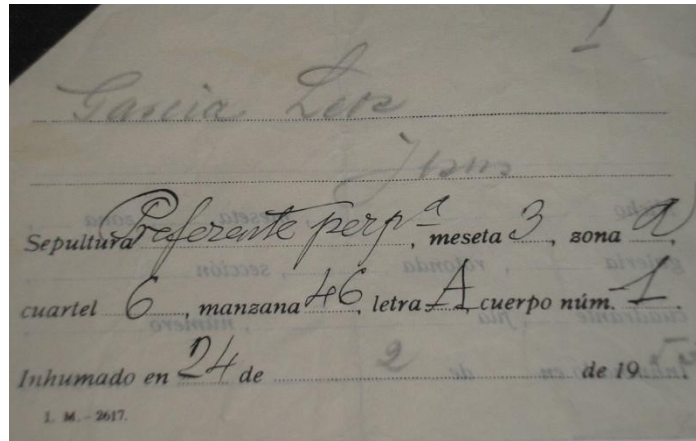 Garcia
Juan
Sepultura Preferente perpª, meseta 3, zona a,
cuartel 6, manzana 46, letra A, cuerpo núm. 1.
Inhumado en 24 de 2 de 19
I. M. - 2617.